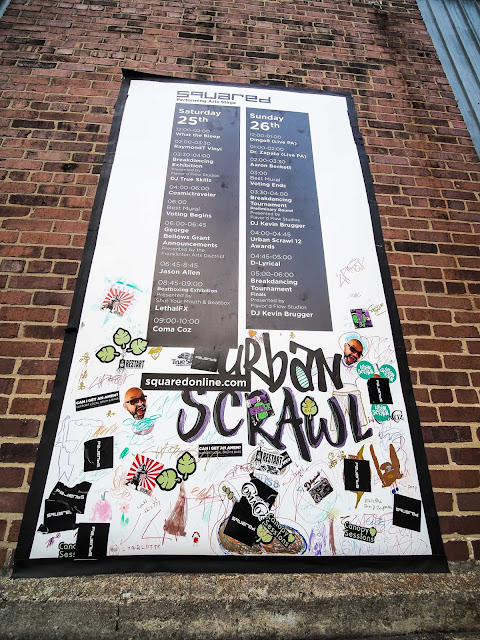 squared
Performing Arts Stage
Saturday
25th
12:00-02:00
What the Bleep
02:00-03:30
RaymondT Vinyl
03:30-04:00
Breakdancing
Exhibition
Presented by
Flavor'd Flow Studios
DJ True Skills
04:00-06:00
Cosmictraveler
06:00
Best Mural
Voting Begins
06:00-06:45
George
Bellows Grant
Announcements
Presented by the
Franklinton Arts District
06:45-8:45
Jason Allen
08:45-09:00
Beatboxing Exhibition
Presented by
Shut Your Mouth & Beatbox
LethalFX
09:00-10:00
Coma Coz
Sunday
26th
12:00-01:00
Dr. Zapata (Live PA)
02:00-03:30
Aaron Beckett
03:00
Best Mural
Voting Ends
03:30-04:00
Breakdancing
Tournament
Preliminary Round
Presented by
Flavor'd Flow Studios
DJ Kevin Brugger
04:00-04:45
Urban Scrawl 12
Awards
04:45-05:00
D-Lyrical
05:00-06:00
Breakdancing
Tournament
Finals
Presented by
Flavor'd Flow Studios
DJ Kevin Brugger
URBAN
SCRAWL
squaredonline.com
RESTART
CAN I GET AN AMEN?
CAN I GET AN AMEN?
RESTART
squared
squared
squared
squared
squared
Canopy
Sessions
Canopy
Sessions
CHARLOTTE